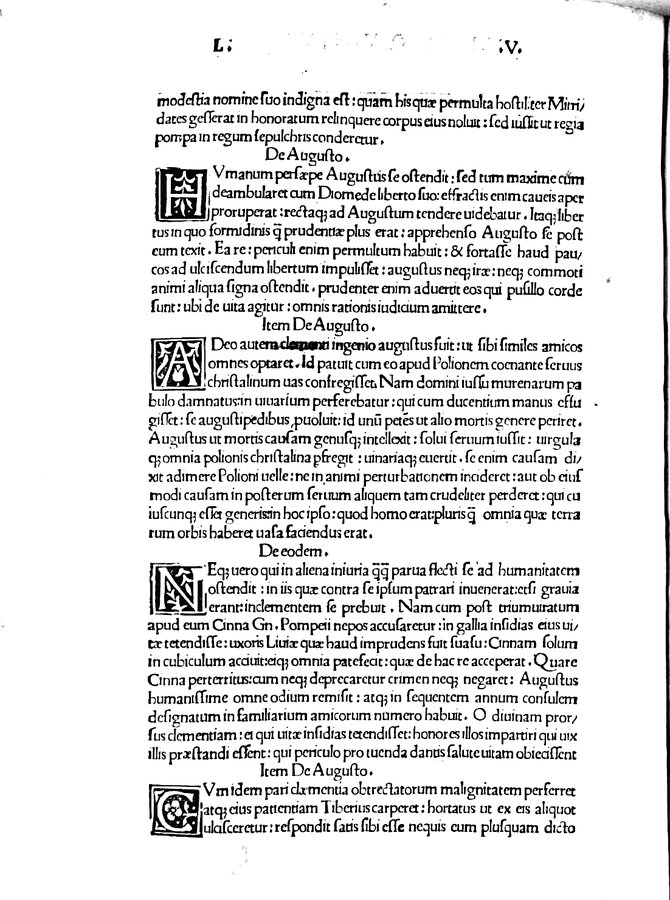 L. .V.
modestia nomine suo indigna est : quam his quæ permulta hostiliter Mitri/
dates gesserat in honoratum relinquere corpus eius noluit : sed iussit ut regia
pompa in regum sepulchris conderetur.
De Augusto.
HVmanum persæpe Augustus se ostendit : sed tum maxime cũm
deambularet cum Diomede liberto suo: effractis enim caueis aper
proruperat : rectaq; ad Augustum tendere uidebatur. Itaq; liber
tus in quo formidinis q̃ prudentiæ plus erat : apprehenso Augusto se post
eum texit. Ea re : periculi enim permultum habuit : & fortasse haud pau/
cos ad ulciscendum libertum impulisset : augustus neq; iræ : neq; commoti
animi aliqua signa ostendit. prudenter enim aduertit eos qui pusillo corde
sunt : ubi de uita agitur : omnis rationis iudicium amittere.
Item De Augusto.
ADeo autem clementi ingenio augustus fuit : ut sibi similes amicos
omnes optaret. Id patuit cum eo apud Polionem coenante seruus
christalinum uas confregisset. Nam domini iussu murenarum pa
bulo damnatus: in uiuarium perferebatur : qui cum ducentium manus effu
gisset : se augusti pedibus, puoluit: id unũ petẽs ut alio mortis genere periret.
Augustus ut mortis causam genusq; intellexit : solui seruum iussit : uirgula
q; omnia polionis christalina pfregit : uinariaq; euertit. se enim causam di/
xit adimere Polioni uelle : ne in animi perturbationem incideret : aut ob eius
modi causam in posterum seruum aliquem tam crudeliter perderet : qui cu
iuscunq; esset generis: in hoc ipso : quod homo erat: pluris q̃ omnia quæ terra
rum orbis haberet uasa faciendus erat.
De eodem.
NEq; uero qui in aliena iniuria q̃q̃ parua flecti se ad humanitatem
ostendit : in iis quæ contra se ipsum patrari inuenerat: etsi grauia
erant: inclementem se prebuit. Nam cum post triumuiratum
apud eum Cinna Gn. Pompeii nepos accusaretur : in gallia insidias eius ui/
tæ tetendisse : uxoris Liuiæ quæ haud imprudens fuit suasu : Cinnam solum
in cubiculum acciuit: eiq; omnia patefecit : quæ de hac re acceperat. Quare
Cinna perterritus: cum neq; deprecaretur crimen neq; negaret : Augustus
humanissime omne odium remisit : atq; in sequentem annum consulem
designatum in familiarium amicorum numero habuit. O diuinam pror/
sus clementiam : ei qui uitæ insidias tetendisset : honores illos impartiri qui uix
illis præstandi essent : qui periculo pro tuenda dantis salute uitam obiecissent
Item De Augusto.
CVm idem pari clæmentia obtrectatorum malignitatem perferret
atq; eius patientiam Tiberius carperet : hortatus ut ex eis aliquot
ulcisceretur : respondit satis sibi esse nequis eum plusquam dicto